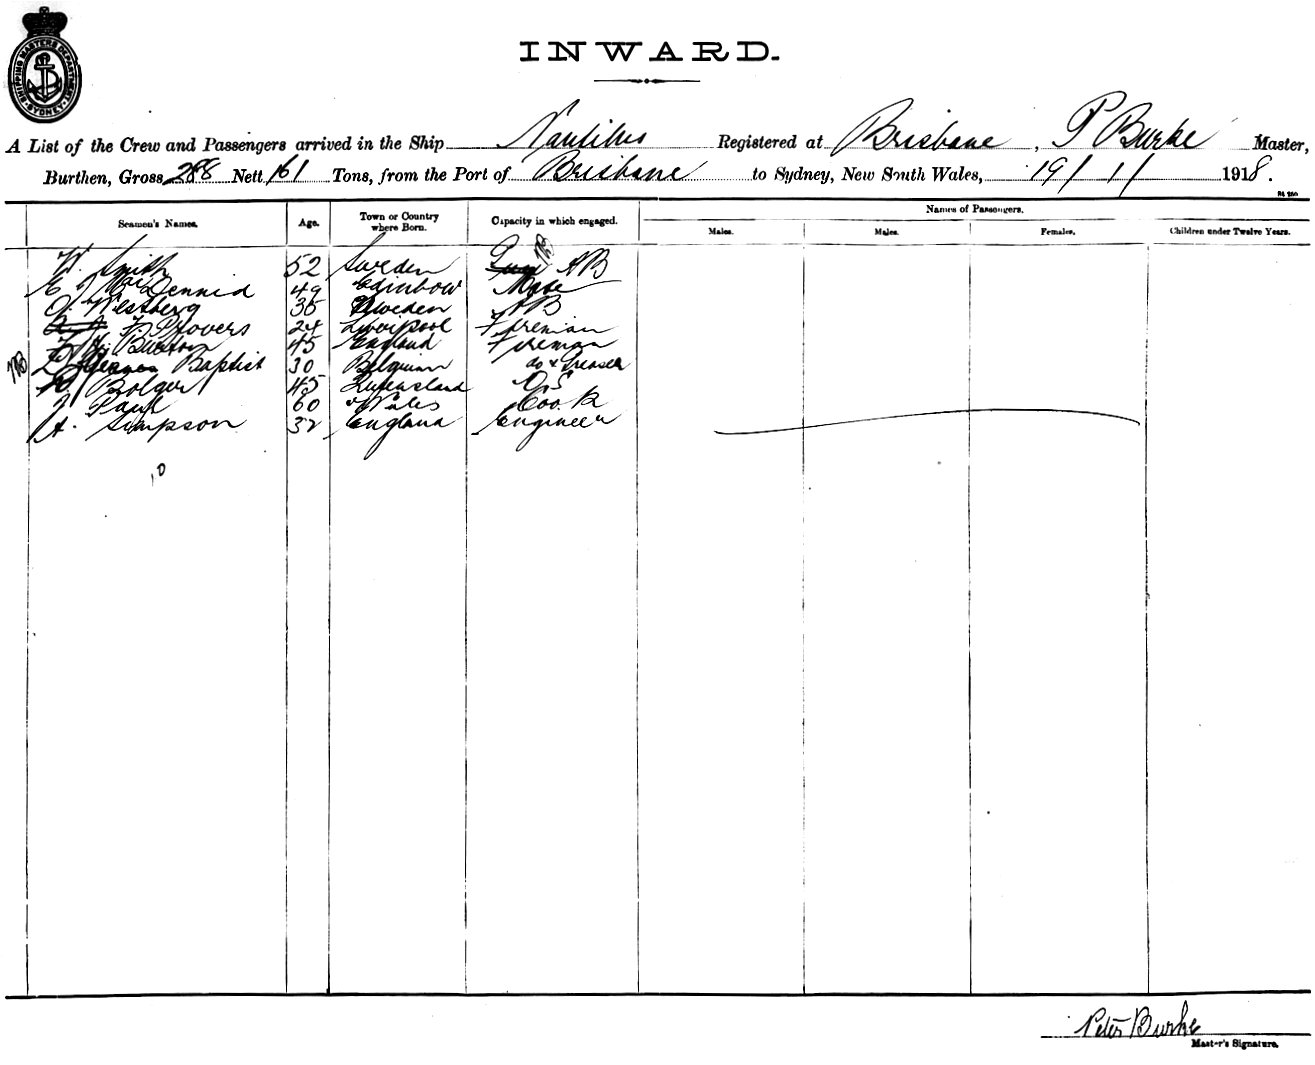 SHIPPING MASTERS DEPARTMENT SYDNEY
INWARD.
A List of the Crew and Passengers arrived in the Ship Nautilus Registered at Brisbane, P Burke Master,
Burthen, Gross 288 Nett 161 Tons, from the Port of Brisbane to Sydney, New South Wales, 19/1/1918.
Seamen's Names. Age. Town or Country where Born. Capacity in which engaged. Names of Passengers.
Males. Males. Females. Children under Twelve Years.
W. Smith 52 Sweden AB
49 Edinbow Mate
O. Westberg 35 Sweden AB
24 Liverpool Fireman
Burton 45 England Fireman
Baptist 30 Belguim do & Greaser
Bolger 45 Queensland O.S
J Paul 60 Wales Cook
A. Simpson 32 England Engineer
10
Peter Burke
Master's Signature.